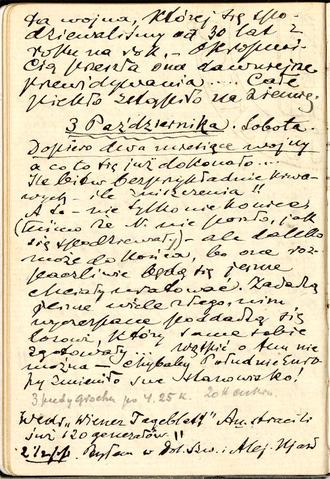 ta wojna, której się spo-
dziewaliśmy od 30 lat z
roku na rok, – okropnoś-
cią przeszła ona dawniejsze
przewidywania .... Całe
piekło zstąpiło na ziemię.
3 Października. Sobota.
Dopiero dwa miesiące wojny
a co to się już dokonało....
Ile bitew bezprzykładnie krwa-
wych – ile zniszczenia!!
A to – nie tylko nie koniec
(mimo że N. nie poszło, jak
się spodziewały) – ale daleko
może do końca, bo one roz-
paczliwie będą się jeszcze
chciały ratować. Zadadzą
jeszcze wiele złego, nim
wyczerpane poddadzą się
losowi, który same sobie
zgotowały... wątpić o tem nie
można – chybaby Południe Euro-
py zmieniło swe stanowisko!
3 pudy grochu po 4.25 k. 20 cukru.
Wedł. "Wiener Tageblatt" Austracili
już 120 generałów!!
Byłam w i Alej. Ujazd